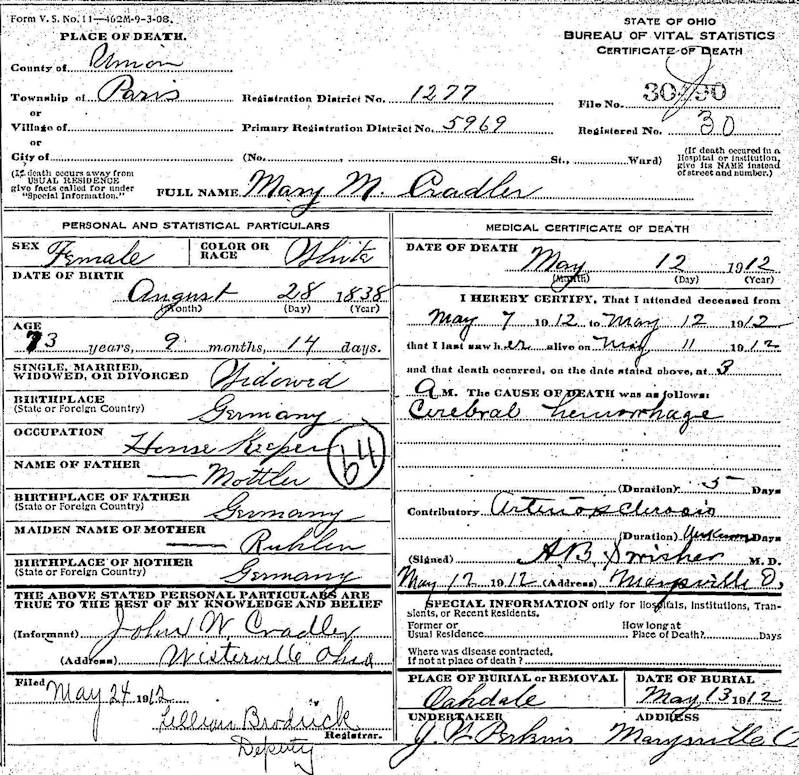 Form V. S. No. 11—462M-9-3-08.
STATE OF OHIO
BUREAU OF VITAL STATISTICS
CERTIFICATE OF DEATH
PLACE OF DEATH.
County of Union
Township of Paris Registration District No. 1277 File No.
or
Village of Primary Registration District No. 5969 Registered No. 30
or
City of (No. , St., Ward)
(If death occured in a Hospital or institution, give its NAME instead of street and number.)
(If death occurs away from USUAL RESIDENCE give facts called for under "Special Information.")
FULL NAME Mary M. Cradler
PERSONAL AND STATISTICAL PARTICULARS
SEX Female COLOR OR RACE White
DATE OF BIRTH
August 28 1838
(Month) (Day) (Year)
AGE
73 years, 9 months, 14 days.
SINGLE, MARRIED,
WIDOWED, OR DIVORCED Widowed
BIRTHPLACE
(State or Foreign Country) Germany
OCCUPATION
House Keeper
NAME OF FATHER
— Mottler
BIRTHPLACE OF FATHER
(State or Foreign Country) Germany
MAIDEN NAME OF MOTHER
— Ruhlen
BIRTHPLACE OF MOTHER
(State or Foreign Country) Germany
THE ABOVE STATED PERSONAL PARTICULARS ARE
TRUE TO THE BEST OF MY KNOWLEDGE AND BELIEF
(Informant) John W. Cradler
(Address) Westerville Ohio
Filed May 24 1912
Lillian Brodrick
Registrar.
Deputy
MEDICAL CERTIFICATE OF DEATH
DATE OF DEATH
May 12 1912
(Month) (Day) (Year)
I HEREBY CERTIFY, That I attended deceased from
May 7 1912 to May 12 1912
that I last saw her alive on May 11 1912
and that death occurred, on the date stated above, at 3
A M. The CAUSE OF DEATH was as follows:
Cerebral hemorrhage
(Duration) 5 Days
Contributory Arteriosclerosis
(Duration) Days
(Signed) A.B. Swisher M. D.
May 12 1912 (Address) Marysville O.
SPECIAL INFORMATION only for Hospitals, Institutions, Transients, or Recent Residents.
Former or
Usual Residence
How long at
Place of Death? Days
Where was disease contracted,
if not at place of death?
PLACE OF BURIAL or REMOVAL
Oakdale
DATE OF BURIAL
May 13 1912
UNDERTAKER
J. W. Perkins
ADDRESS
Marysville O